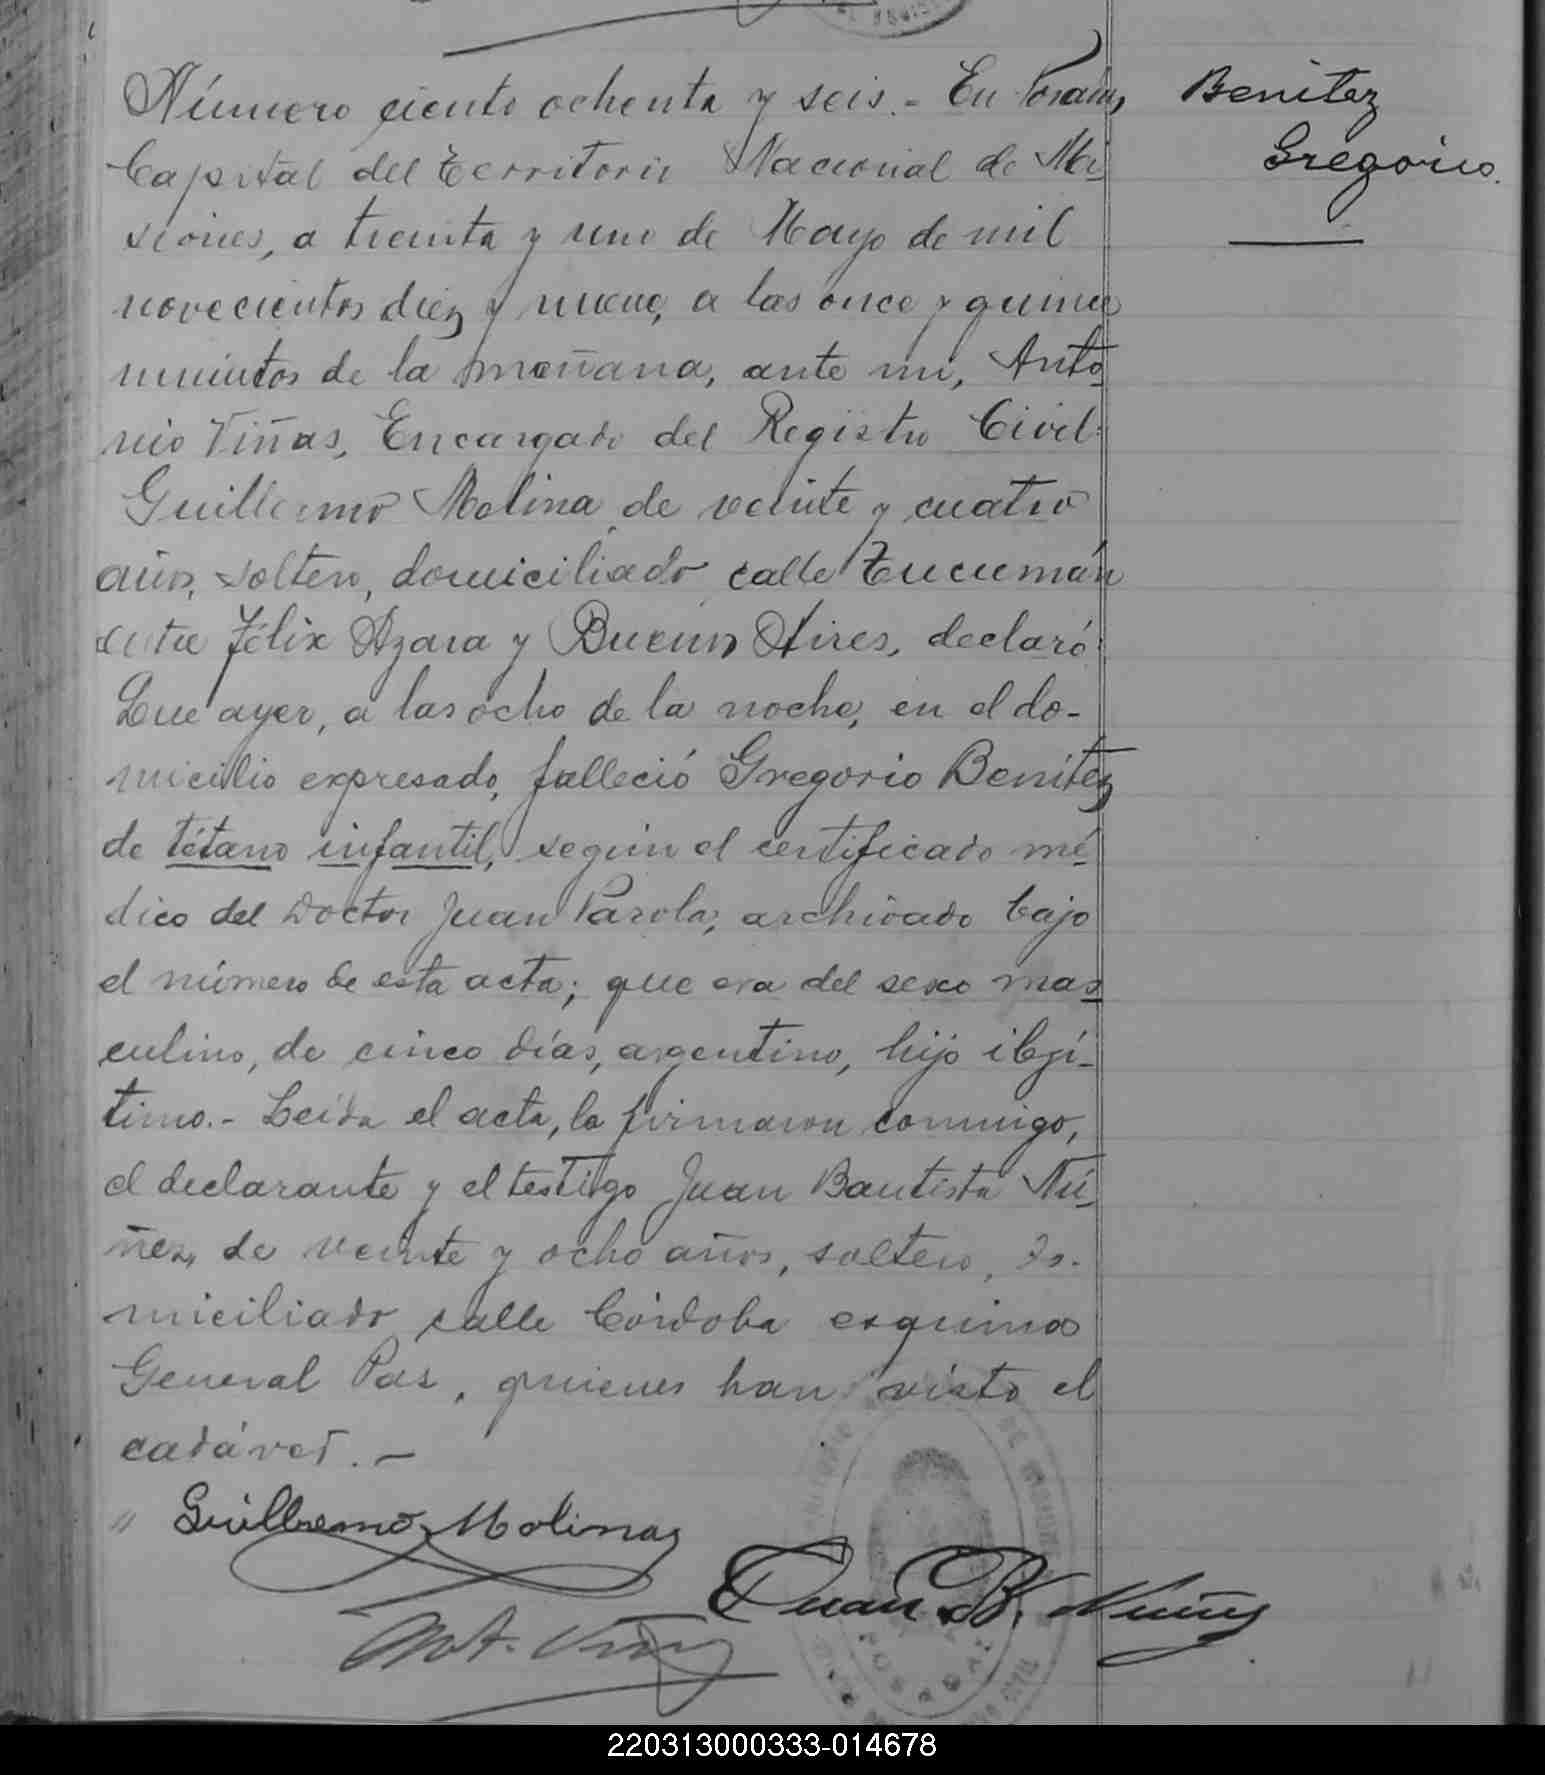 Número ciento ochenta y seis.- En Posadas,
Benitez
Capital del Territorio Nacional de Mi-
Gregorio.
siones, a treinta y uno de Mayo de mil
novecientos diez y nueve, a las once y quince
minutos de la mañana, ante mi, Anto-
nio Viñas, Encargado del Registro Civil:
Guillermo Molina de veinte y cuatro
años, soltero, domiciliado calle Tucumán
entre Félix Azara y Buenos Aires, declaró:
Que ayer, a las ocho de la noche, en el do-
micilio expresado, falleció Gregorio Benítez
de tétano infantil, según el certificado mé-
dico del Doctor Juan Parola, archivado bajo
el número de esta acta; que era del sexo mas-
culino, de cinco días, argentino, hijo ilegí-
timo.- Leída el acta, la firmaron conmigo,
el declarante y el testigo Juan Bautista Nú-
ñez, de veinte y ocho años, soltero, do-
miciliado calle Córdoba esquina
General Paz, quienes han visto el
cadáver.-
" Guillermo Molinas
Juan B. Nuñez
Ant. Viñas
POSADAS
220313000333-014678